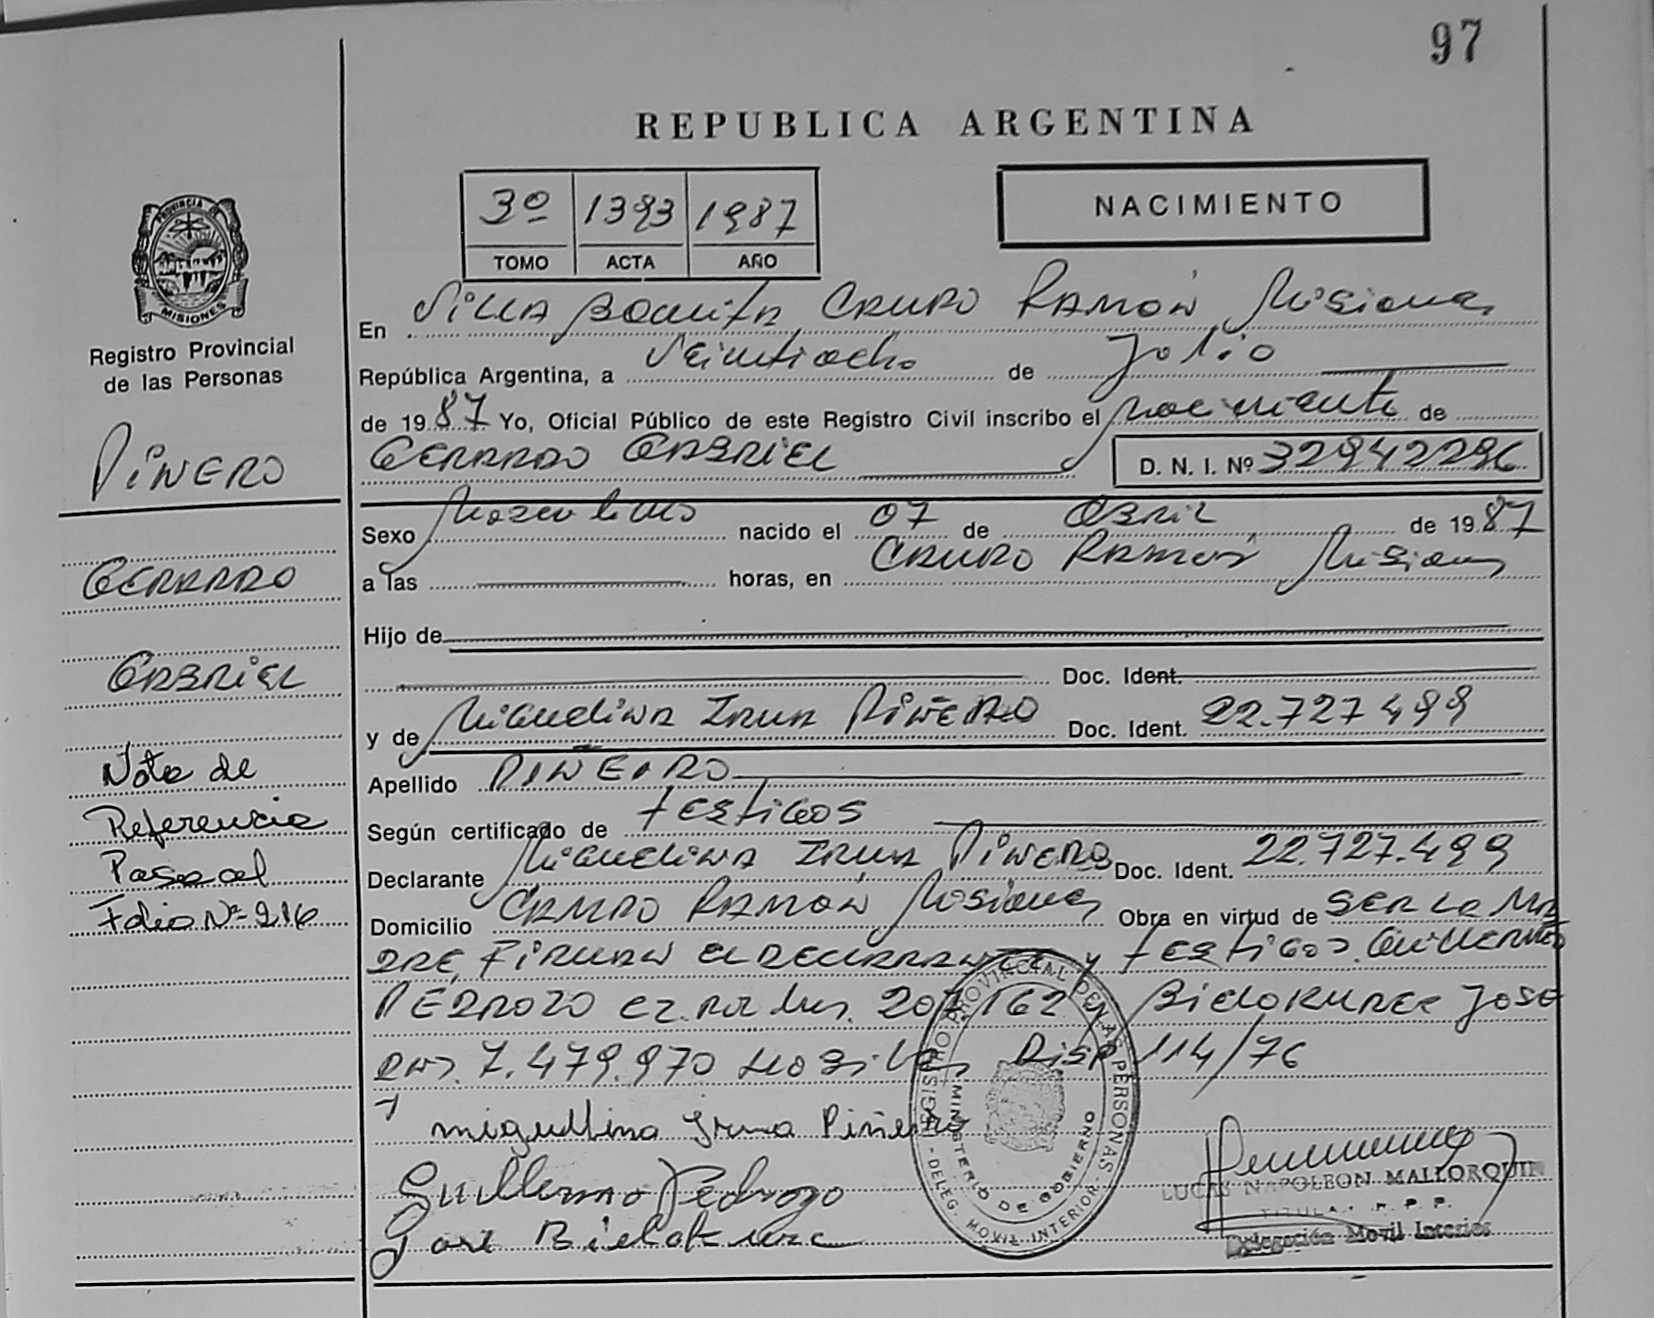 97
REPUBLICA ARGENTINA
3º 1393 1987
TOMO ACTA AÑO
NACIMIENTO
PROVINCIA DE
MISIONES
Registro Provincial
de las Personas
PIÑERO
GERARDO
GABRIEL
Nota de
Referencia
Pasa al
Folio Nº 216
En Villa Bonita, CAMPO RAMÓN, Misiones
República Argentina, a Veintiocho de Julio
de 1987 Yo, Oficial Público de este Registro Civil inscribo el nacimiento de
GERARDO GABRIEL D. N. I. Nº 32942296
Sexo Masculino nacido el 07 de ABRIL de 1987
a las horas, en CAMPO RAMÓN Misiones
Hijo de
Doc. Ident.
y de Miguelina IRMA PIÑEIRO Doc. Ident. 22.727.499
Apellido PIÑEIRO
Según certificado de testigos
Declarante Miguelina IRMA PIÑERO Doc. Ident. 22.727.499
Domicilio CAMPO RAMÓN Misiones Obra en virtud de SER LA MA
DRE, FIRMAN EL DECLARANTE y testigos. Guillermo
PEDROZO 207162 BIELOKUREC JOSÉ
7.479.970 Disp 114/76
miguelina Irma Piñeiro
Guillermo Pedrozo
José Bielokurec
REGISTRO PROVINCIAL DE LAS PERSONAS
MINISTERIO DE GOBIERNO
- DELEG. MOVIL INTERIOR -
LUCAS NAPOLEON MALLORQUIN
TITULAR R. P. P.
Delegación Movil Interior